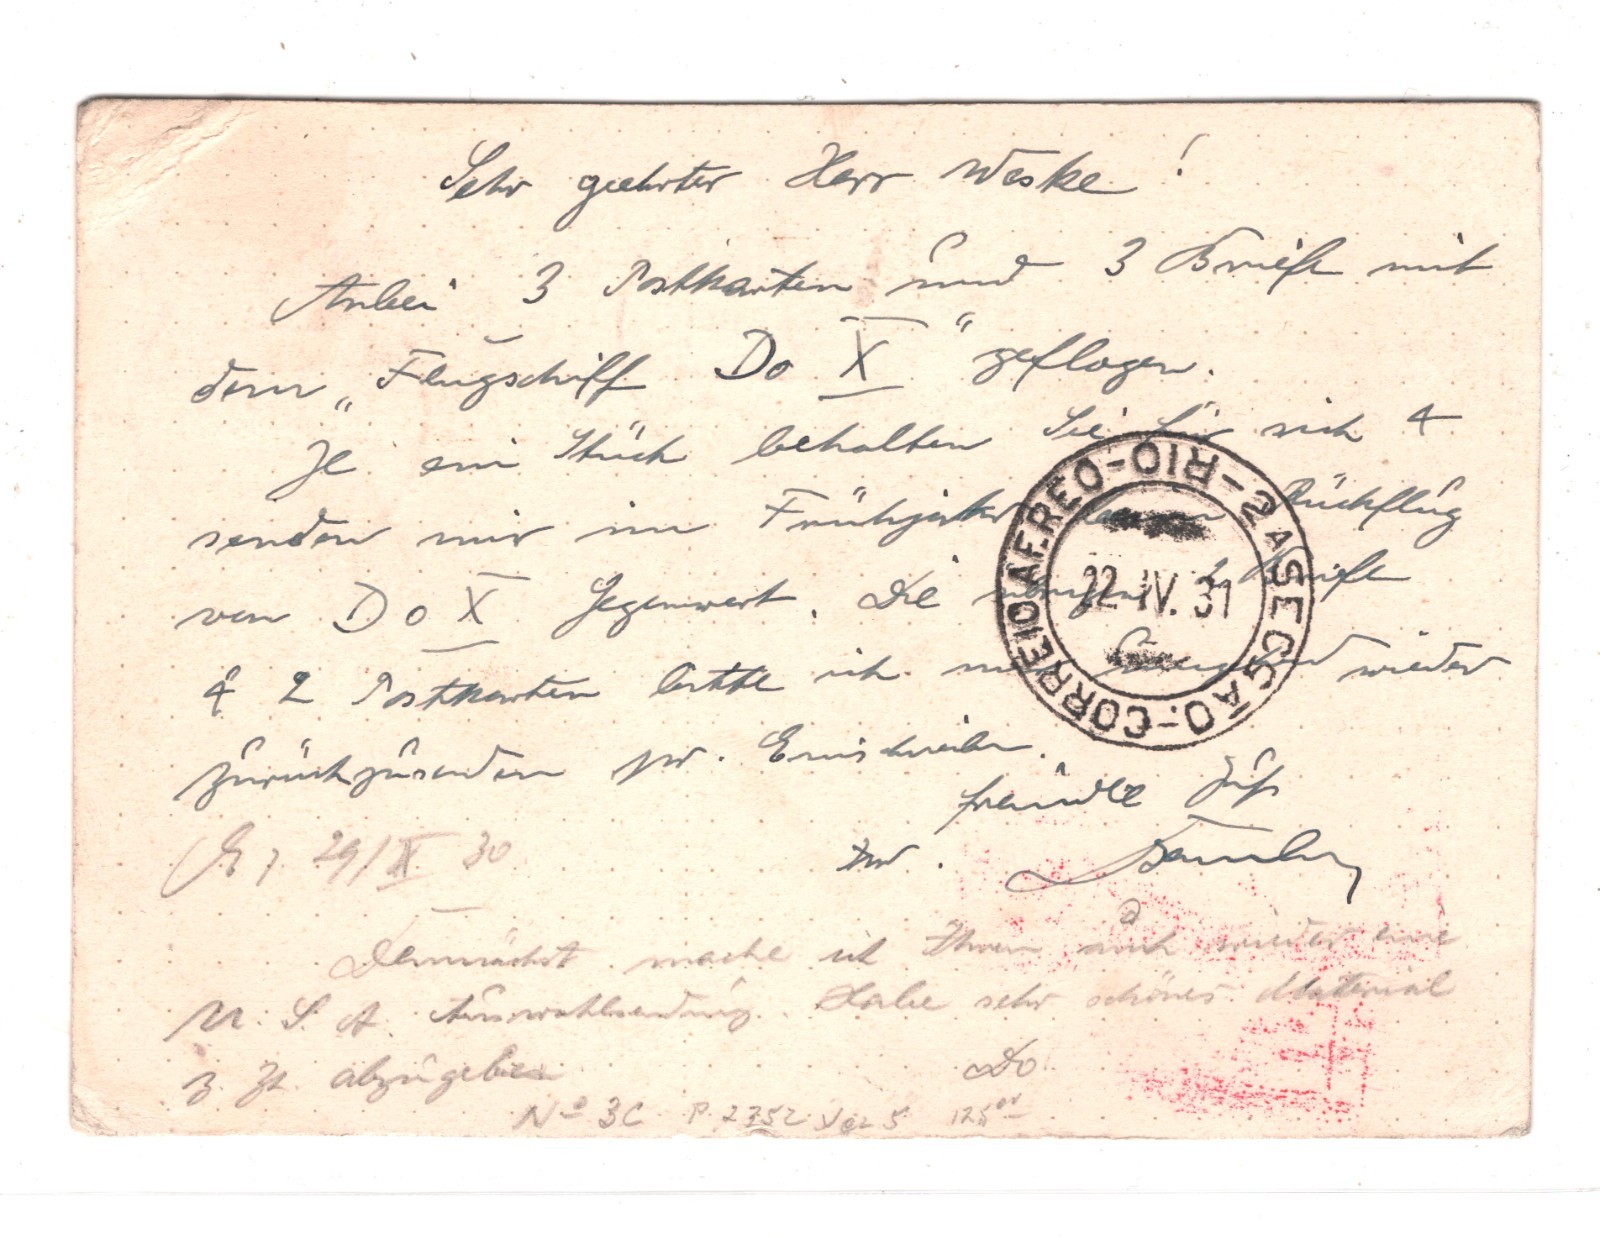 Sehr geehrter Herr Weske!
Anbei 3 Postkarten und 3 Briefe mit
dem „Flugschiff Do X“ geflogen.
Je ein Stück behalten Sie für sich &
senden mir im Frühjahr Rückflug
von Do X Gegenwert. Die übrigen 2 Briefe
& 2 Postkarten bitte ich mir wieder
zurückzusenden pr. Einschreiben.
freundl
29/XI 30
Demnächst mache ich Ihnen auch wieder eine
U. S. A. Auswahlsendung. Habe sehr schönes Material
z. Zt. abzugeben
Do
Nº 3C P. 2752 5
CORREIO AEREO-RIO-2A SECÇÃO.
22 IV. 31